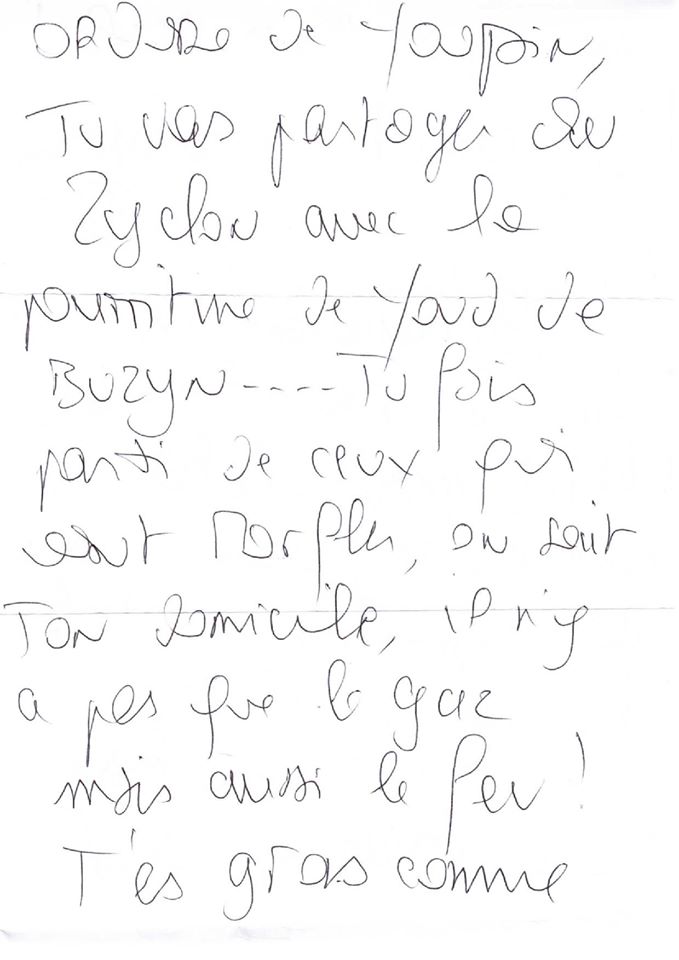 ORDURE de Youpin,
Tu vas partager du
Zyclon avec la
pourriture de Youd de
BUZYN----Tu fais
parti de ceux qui
vont morfler, on sait
Ton domicile, il n'y
a pas que le gaz
mais aussi le feu!
T'es gras comme